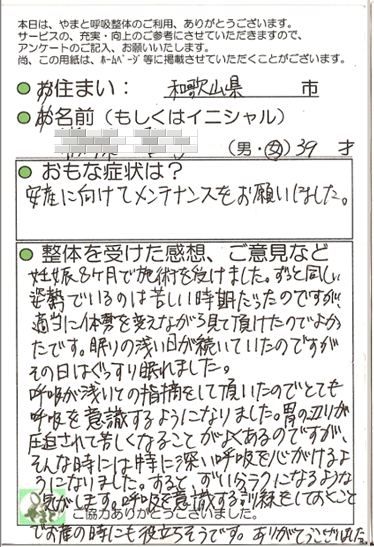 本日は、やまと呼吸整体のご利用、ありがとうございます。
サービスの、充実・向上のご参考にさせていただきますので、
アンケートのご記入、お願いいたします。
尚、この用紙は、ﾎｰﾑﾍﾟｰｼﾞ等に掲載させていただくことがございます。
お住まい： 和歌山県 市
お名前（もしくはイニシャル）
（男・女）39 才
おもな症状は？
安産に向けてメンテナンスをお願いしました。
整体を受けた感想、ご意見など
妊娠8ヶ月で施術を受けました。ずっと同じ
姿勢でいるのは苦しい時期だったのですが、
適当に体勢を変えながら見て頂けたのでよか
たです。眠りの浅い日が続いていたのですが
その日はぐっすり眠れました。
呼吸が浅いとの指摘をして頂いたのでとても
呼吸を意識するようになりました。胃の辺りが
圧迫されて苦しくなることがよくあるのですが、
そんな時には特に深い呼吸を心がけるよ
うになりました。すると、ずいぶんラクになるような
気がします。呼吸を意識する訓練をしておくこと
ご協力ありがとうございました。
でお産の時にも役立ちそうです。ありがとうございました。